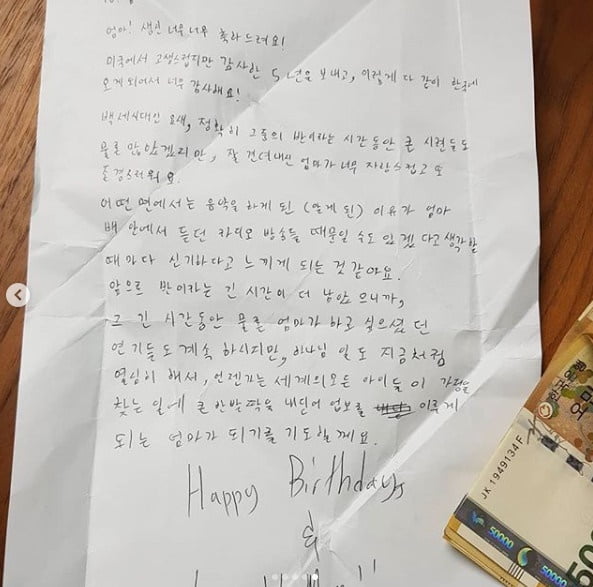 엄마! 생신 너무너무 축하드려요!
미국에서 고생스럽지만 감사한 5년을 보내고, 이렇게 다 같이 한국에
오게 되어서 너무 감사해요!
백세시대인 요새, 정확히 그중의 반이라는 시간동안 큰 시련들도
물론 많았겠지만, 잘 견뎌내신 엄마가 너무 자랑스럽고 또
존경스러워요.
어떤 면에서는 음악을 하게 된 (알게 된) 이유가 엄마
배 안에서 듣던 라디오 방송들 때문일 수도 있겠다고 생각할
때마다 신기하다고 느끼게 되는 것 같아요.
앞으로 반이라는 긴 시간이 더 남았으니까,
그 긴 시간동안 물론 엄마가 하고 싶으셨던
연기들도 계속 하시지만, 하나님 일도 지금처럼
열심히 해서, 언젠가는 세계의 모든 아이들이 가정을
찾는 일에 큰 반발짝을 내딛어 업보를 이루게
되는 엄마가 되기를 기도할께요.
Happy Birthday
&
JK 1949134 F
50000
50000